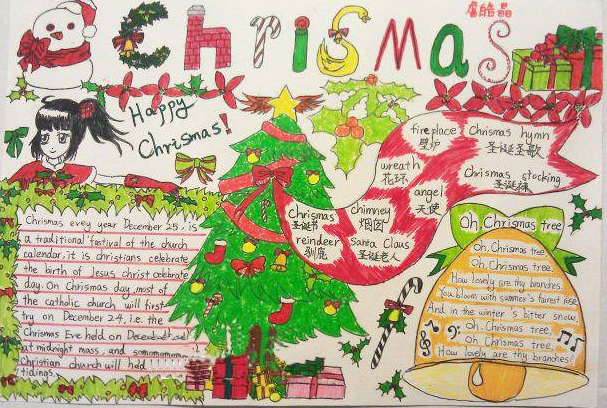 Chrismas
唐皓晶
Happy
Chrismas!
fireplace
壁炉
Chrismas hymn
圣诞圣歌
wreath
花环
Chrismas stocking
圣诞袜
angel
天使
Chrismas
圣诞节
chimney
烟囱
reindeer
驯鹿
Santa Claus
圣诞老人
Chrismas, evey year December 25, is
a traditional fastival of the church
calendar, it is christians celebrate
the birth of Jesus christ celebrate
day. On Chrismas day, most of
the catholic church will first
try on December 24, i.e. the
Chrismas Eve held on December
at midnight mass, and
Christian church will held
tidings.
Oh, Chrismas tree
Oh, Chrismas tree.
Oh, Chrismas tree.
How lovely are thy branches.
You bloom with summer's fairest rise,
And in the winter's bitter snow.
Oh. Chrismas tree.
Oh Chrismas tree,
How lovely are thy branches!